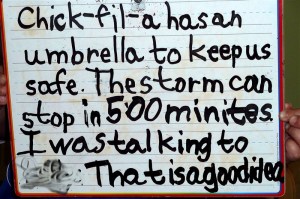 Chick-fil-a has an
umbrella to keep us
safe. The storm can
stop in 500 minites.
I was talking to
That is a good idea